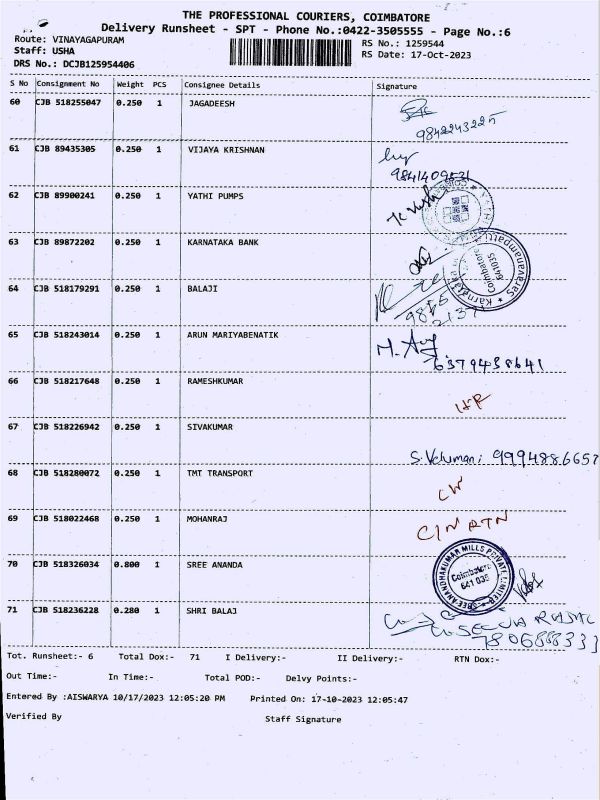 THE PROFESSIONAL COURIERS, COIMBATORE
Delivery Runsheet - SPT - Phone No.:0422-3505555 - Page No.:6
Route: VINAYAGAPURAM
RS No.: 1259544
Staff: USHA
RS Date: 17-Oct-2023
DRS No.: DCJB125954406
S No Consignment No Weight PCS Consignee Details Signature
60 CJB 518255047 0.250 1 JAGADEESH
9842243225
61 CJB 89435305 0.250 1 VIJAYA KRISHNAN
62 CJB 89900241 0.250 1 YATHI PUMPS
63 CJB 89872202 0.250 1 KARNATAKA BANK
Saravanampatti
Coimbatore
641035
64 CJB 518179291 0.250 1 BALAJI
65 CJB 518243014 0.250 1 ARUN MARIYABENATIK
6379438641
66 CJB 518217648 0.250 1 RAMESHKUMAR
67 CJB 518226942 0.250 1 SIVAKUMAR
S. Velumani 9994886657
68 CJB 518280072 0.250 1 TMT TRANSPORT
69 CJB 518022468 0.250 1 MOHANRAJ
C/N RTN
70 CJB 518326034 0.800 1 SREE ANANDA
SREE ANANDHAKUMAR MILLS PRIVATE LIMITED
Coimbatore
641 035
71 CJB 518236228 0.280 1 SHRI BALAJ
Tot. Runsheet:- 6 Total Dox:- 71 I Delivery:- II Delivery:- RTN Dox:-
Out Time:- In Time:- Total POD:- Delvy Points:-
Entered By :AISWARYA 10/17/2023 12:05:20 PM Printed On: 17-10-2023 12:05:47
Verified By Staff Signature